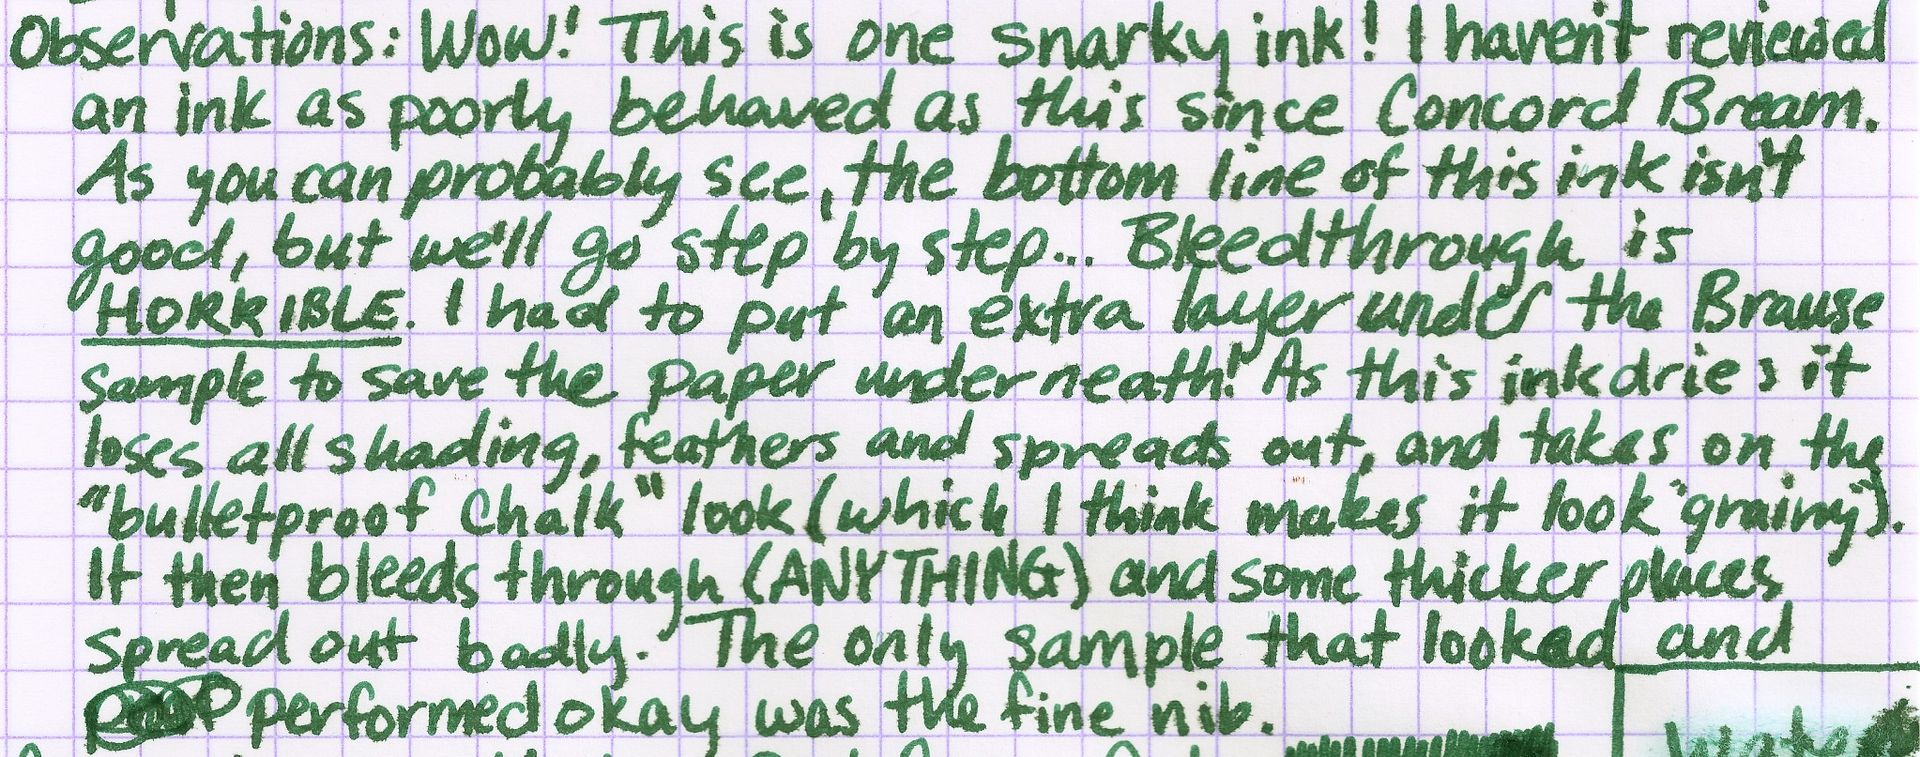 Observations: Wow! This is one snarky ink! I haven't reviewed
an ink as poorly behaved as this since Concord Bream.
As you can probably see, the bottom line of this ink isn't
good, but we'll go step by step... Bleedthrough is
HORRIBLE. I had to put an extra layer under the Brause
sample to save the paper underneath! As this ink dries it
loses all shading, feathers and spreads out, and takes on the
"bulletproof chalk" look (which I think makes it look "grainy").
It then bleeds through (ANYTHING) and some thicker places
spread out badly. The only sample that looked and
performed okay was the fine nib.